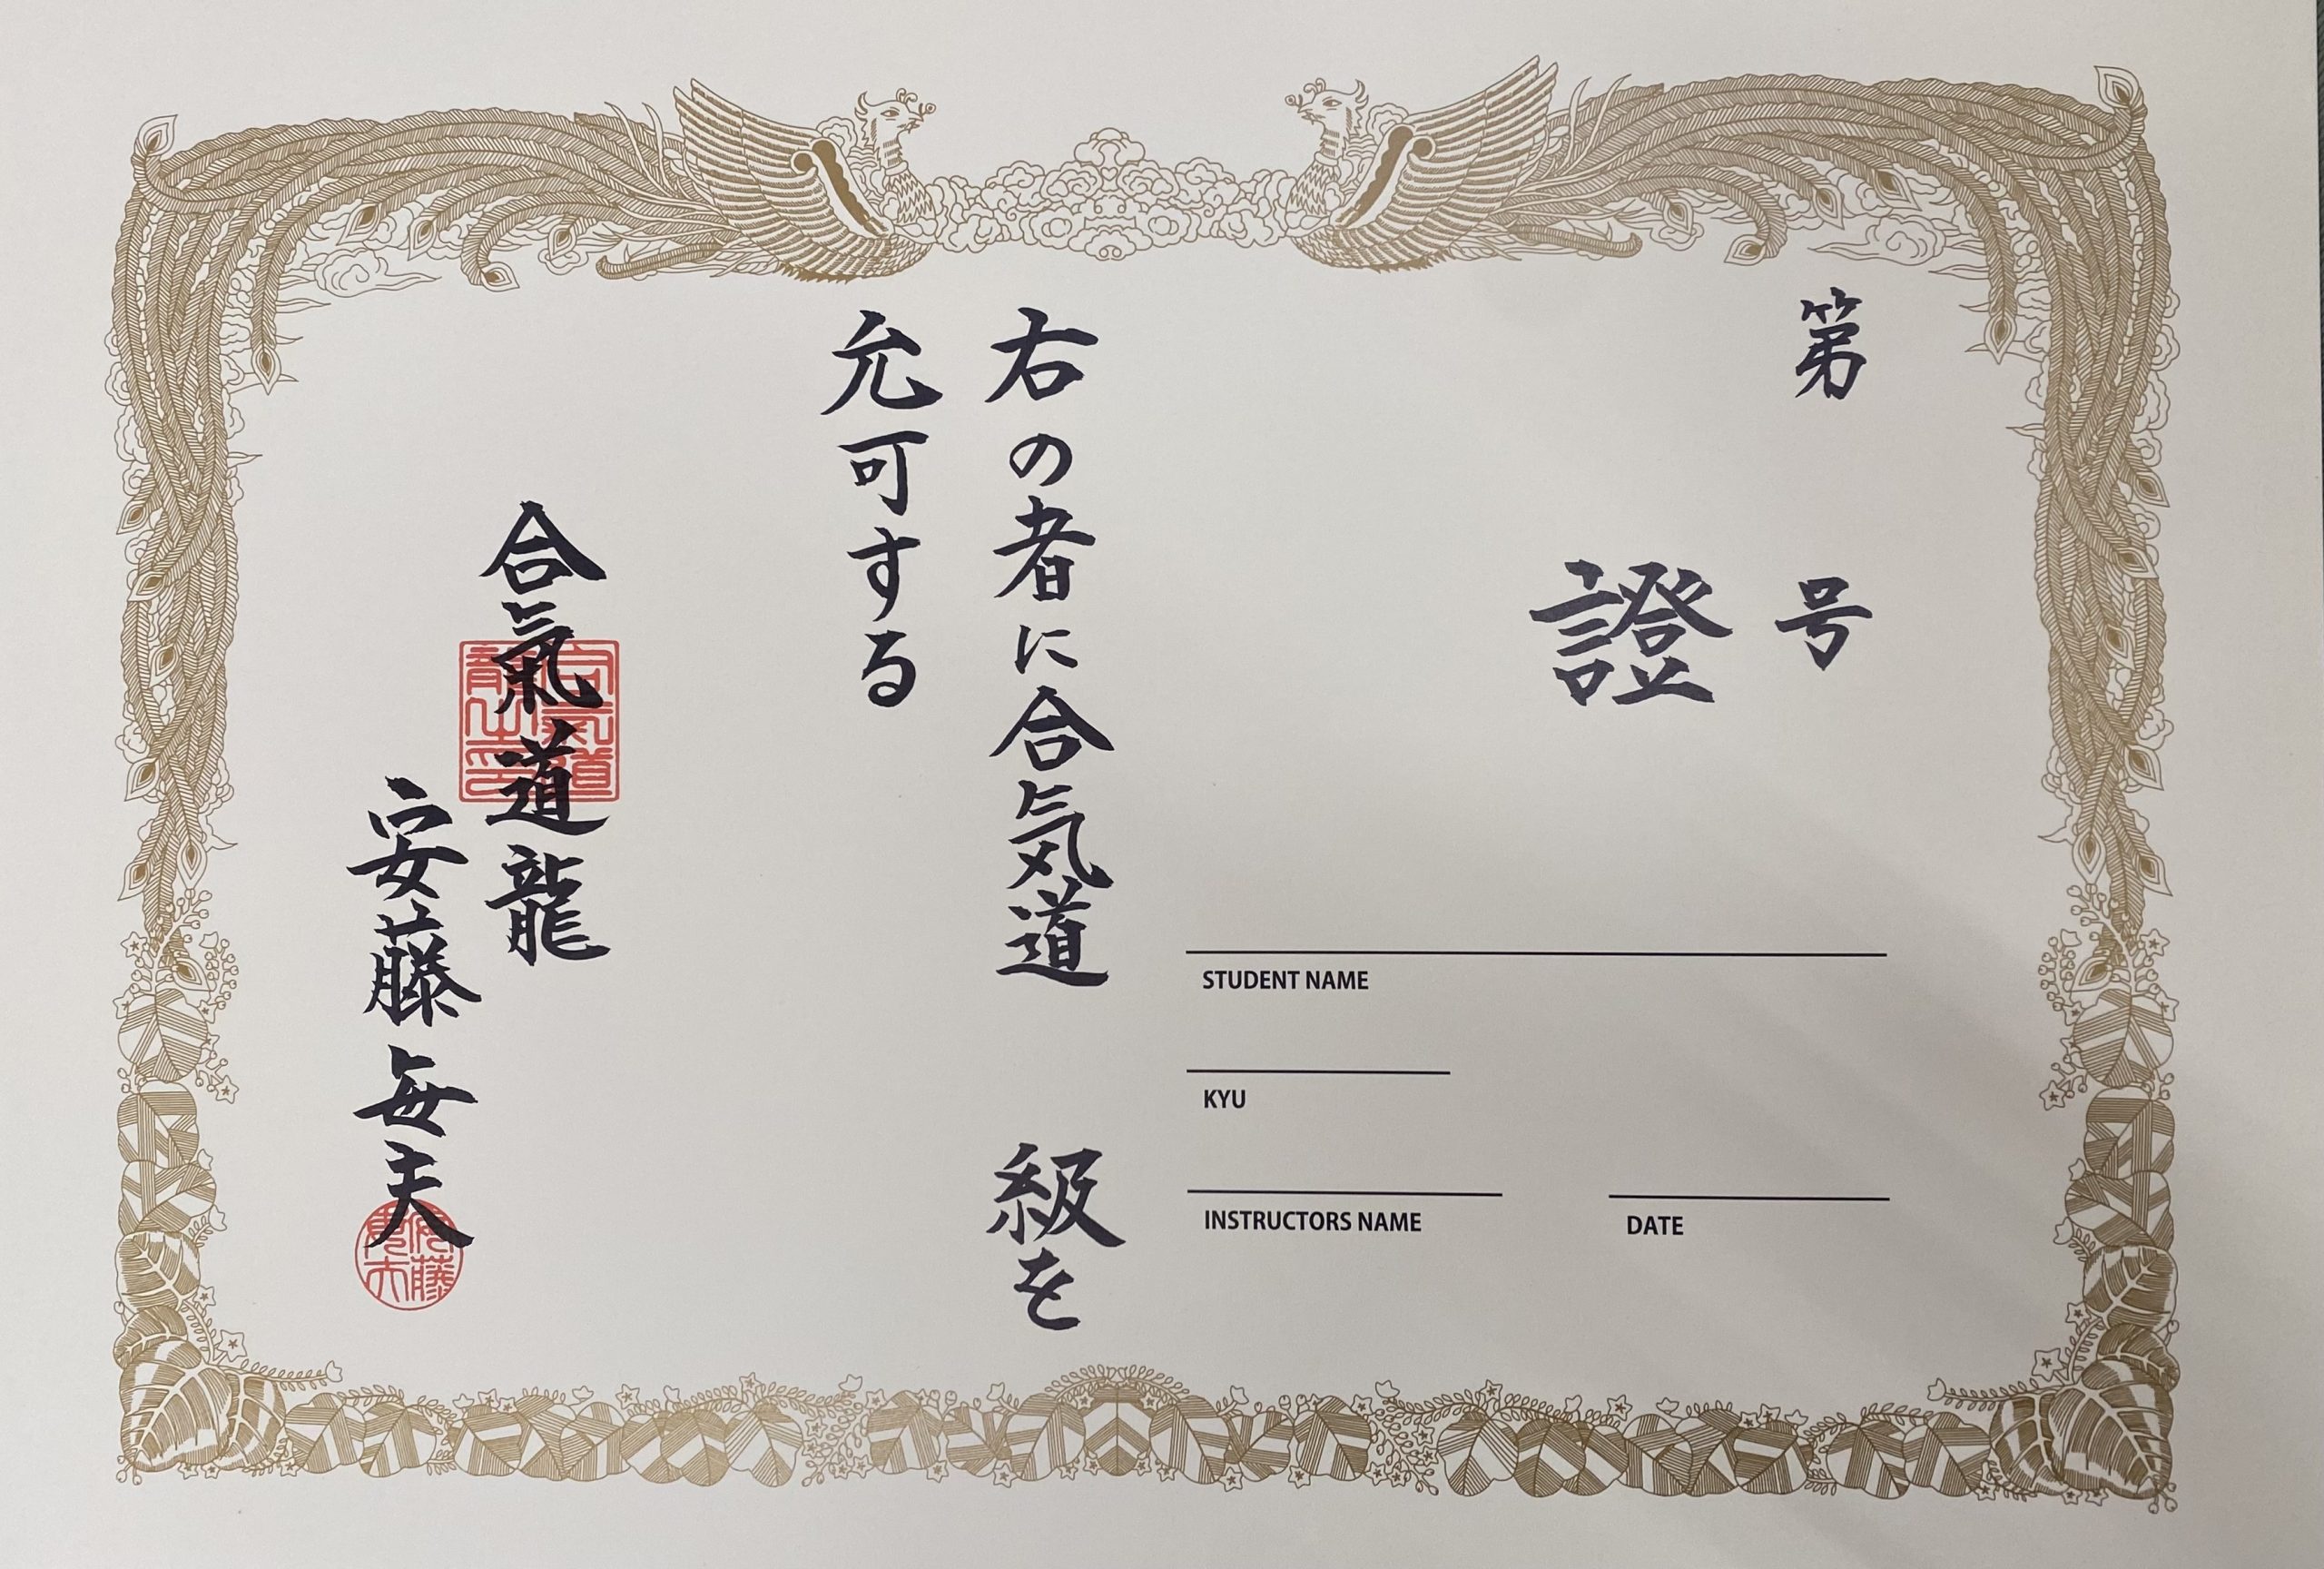 第　号
證
STUDENT NAME
KYU
INSTRUCTORS NAME
DATE
右の者に合気道　級を
允可する
合氣道龍
安藤毎夫